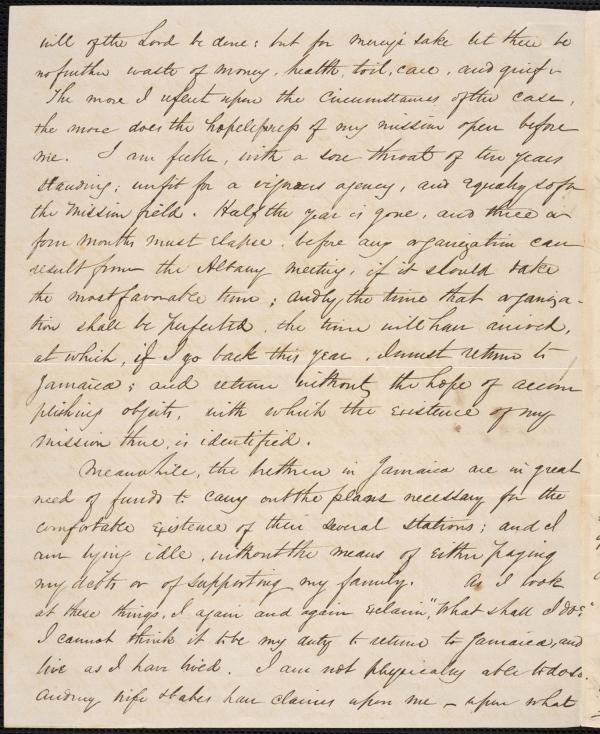 will of the Lord be done; but for mercy's sake let there be
no further waste of money, health, toil, care, and grief.
The more I reflect upon the circumstances of the case,
the more does the hopelessness of my mission open before
me. I am feeble, with a sore throat of ten years
standing; unfit for a vigorous agency, and equally so for
the Mission field. Half the year is gone, and three or
four months must elapse, before any organization can
result from the Albany meeting, if it should take
the most favorable turn; and by the time that organiza-
tion shall be perfected, the time will have arrived,
at which, if I go back this year, I must return to
Jamaica; and return without the hope of accom
plishing objects, with which the existence of my
mission there, is identified.
Meanwhile, the brethren in Jamaica are in great
need of funds to carry out the plans necessary for the
comfortable existence of their several stations; and I
am lying idle, without the means of either paying
my debts or of supporting my family. As I look
at these things, I again and again exclaim, "What shall I do?"
I cannot think it to be my duty to return to Jamaica, and
live as I have lived. I am not physically able to do so.
And my wife & babes have claims upon me – upon what